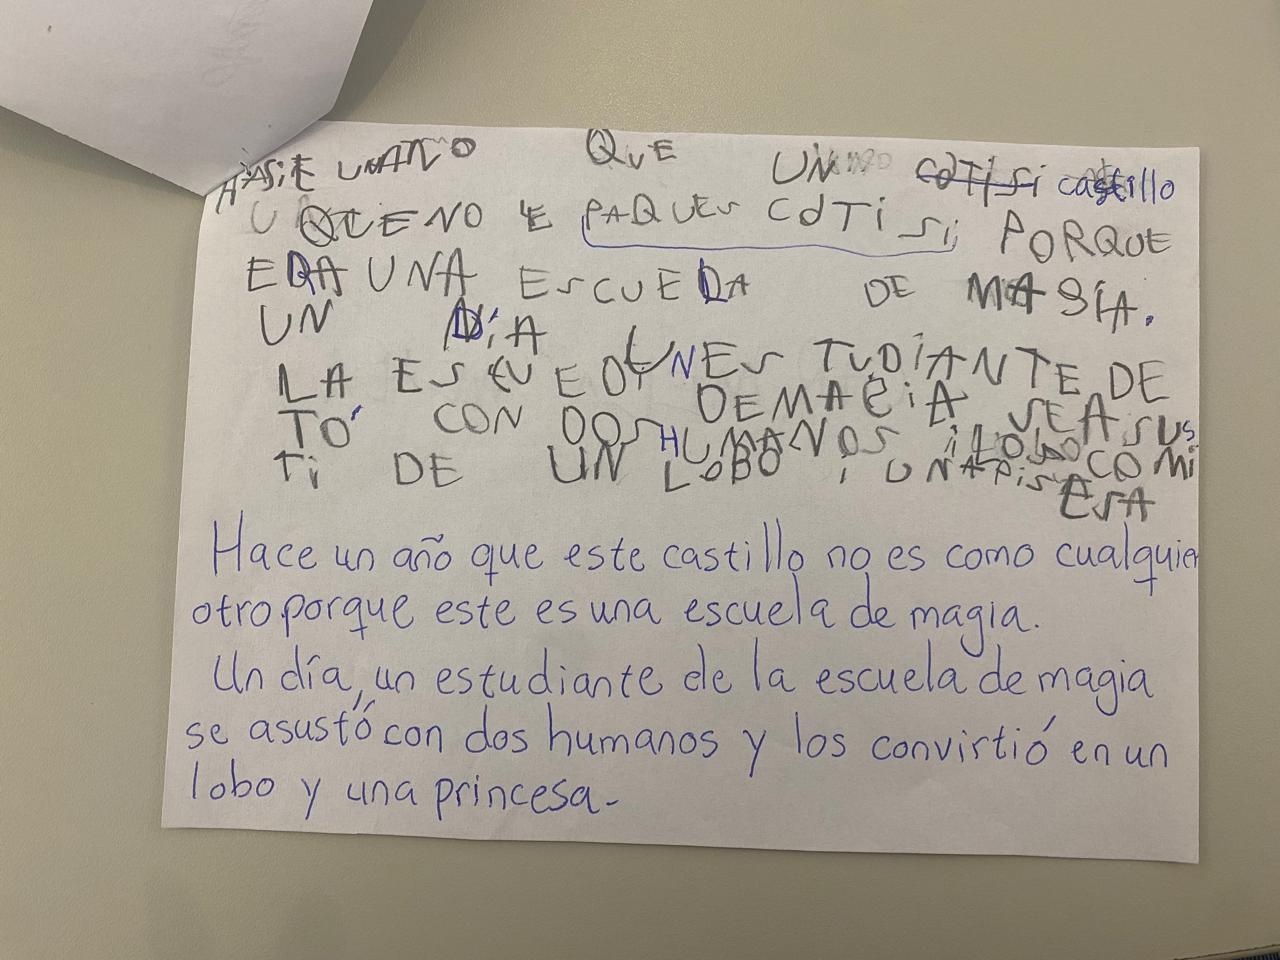 HASiE UNANO QUE UN castillo
QUE NO E PAQUES COTiSi PORQUE
ERA UNA ESCUELA DE MAGÍA.
UN DÍA UN ESTUDiANTE DE
LA ESCUE DEMAGiA SE ASUS
TÓ CON DOS HUMANOS i LOS COMi
Ti DE UN LOBO i UNA PiSESA
Hace un año que este castillo no es como cualquier
otro porque este es una escuela de magia.
Un día, un estudiante de la escuela de magia
se asustó con dos humanos y los convirtió en un
lobo y una princesa.